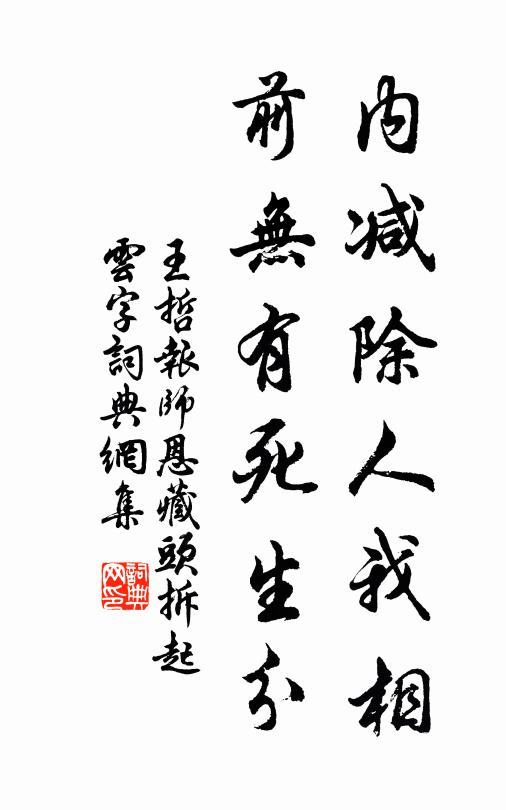 内減除人我相
前無有死生分
王哲報師恩藏頭拆起
雲字詞典網集
詞典
网印